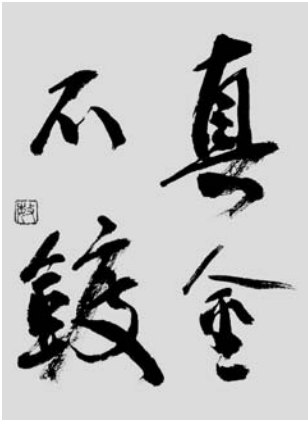 真金
不鍍